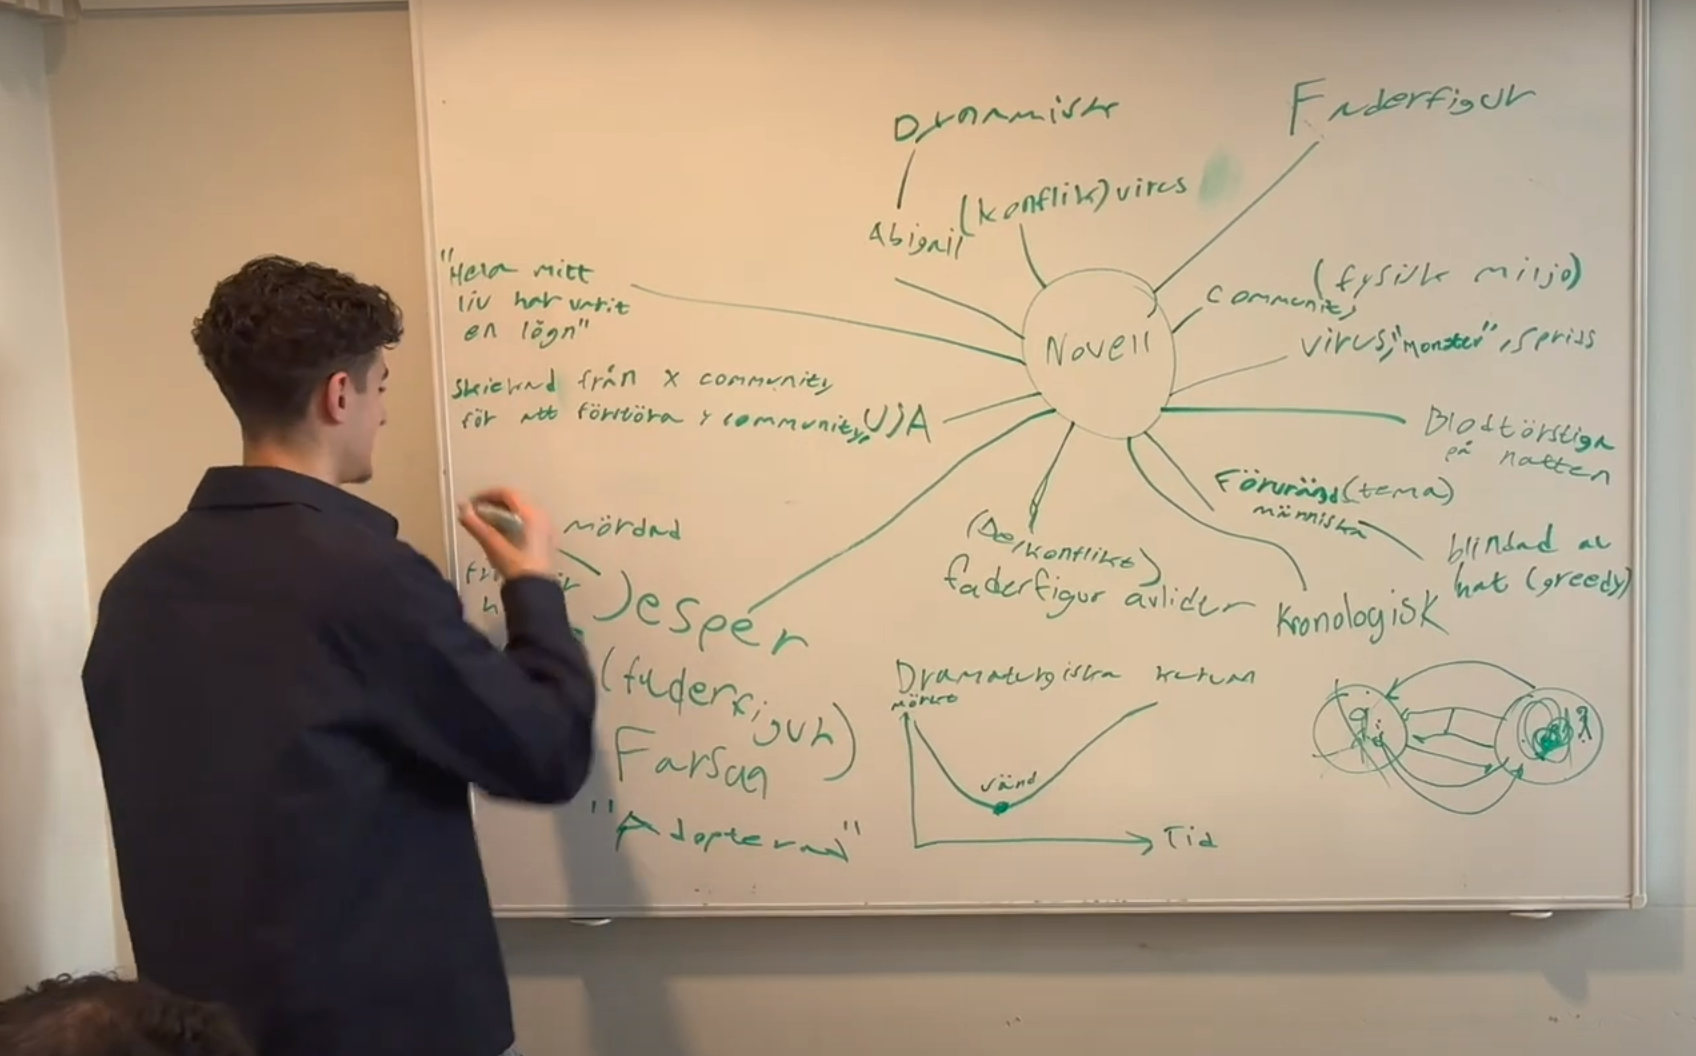 Dynamisk
Faderfigur
(konflik) virus
Abigail
(fysisk miljö)
community
"Hela mitt
liv har varit
en lögn"
Novell
virus, "monster", spriss
skickad från x community
för att förstöra y community,
USA
Blodtörstiga
på natten
Förvrängd (tema)
människa
mördad
(Delkonflikt)
faderfigur avlider
blindad av
hat (greedy)
Kronologisk
Jesper
(faderfigur)
Farsan
"Adopterad"
Dramaturgiska kurvan
mörkt
vänd
Tid